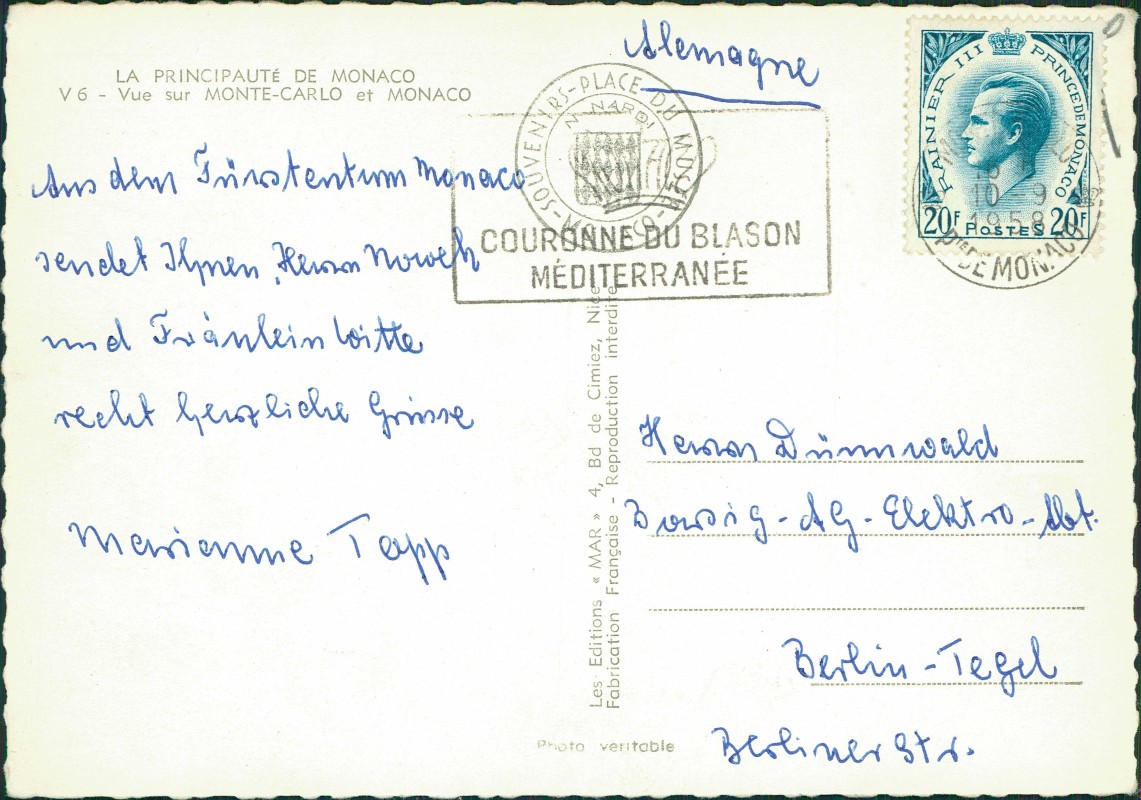 Alemagne
LA PRINCIPAUTÉ DE MONACO
V 6 - Vue sur MONTE-CARLO et MONACO
SOUVENIRS-PLACE DU MUSEE-MONACO-
N. NARDI
COURONNE DU BLASON
MÉDITERRANÉE
RAINIER III PRINCE DE MONACO
20F POSTES 20F
10-9
1958
Pté DE MONACO
Aus dem Fürstentum Monaco
sendet Ihnen, Herrn
und Fräulein Witte
recht herzliche Grüsse
Marianne Tapp
Les Editions « MAR » 4, Bd de Cimiez, Nice
Fabrication Française - Reproduction interdite
Herrn Dünnwald
Borsig-AG-Elektro-Abt.
Berlin-Tegel
Berliner Str.
Photo veritable